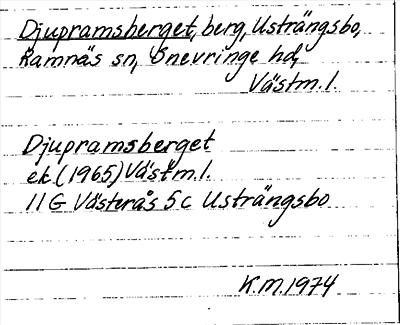 Djupramsberget, berg, Usträngsbo,
Ramnäs sn, Snevringe hd,
Västm.l.
Djupramsberget
ek (1965) Västm.l.
11G Västerås 5c Usträngsbo
K.M. 1974